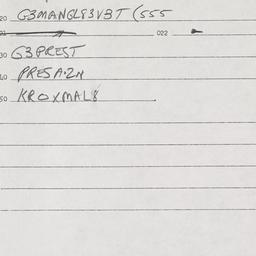 20 G3MANGL83VBT (555
022
30 G3PREST
PRESA2N
50 KROXMAL8